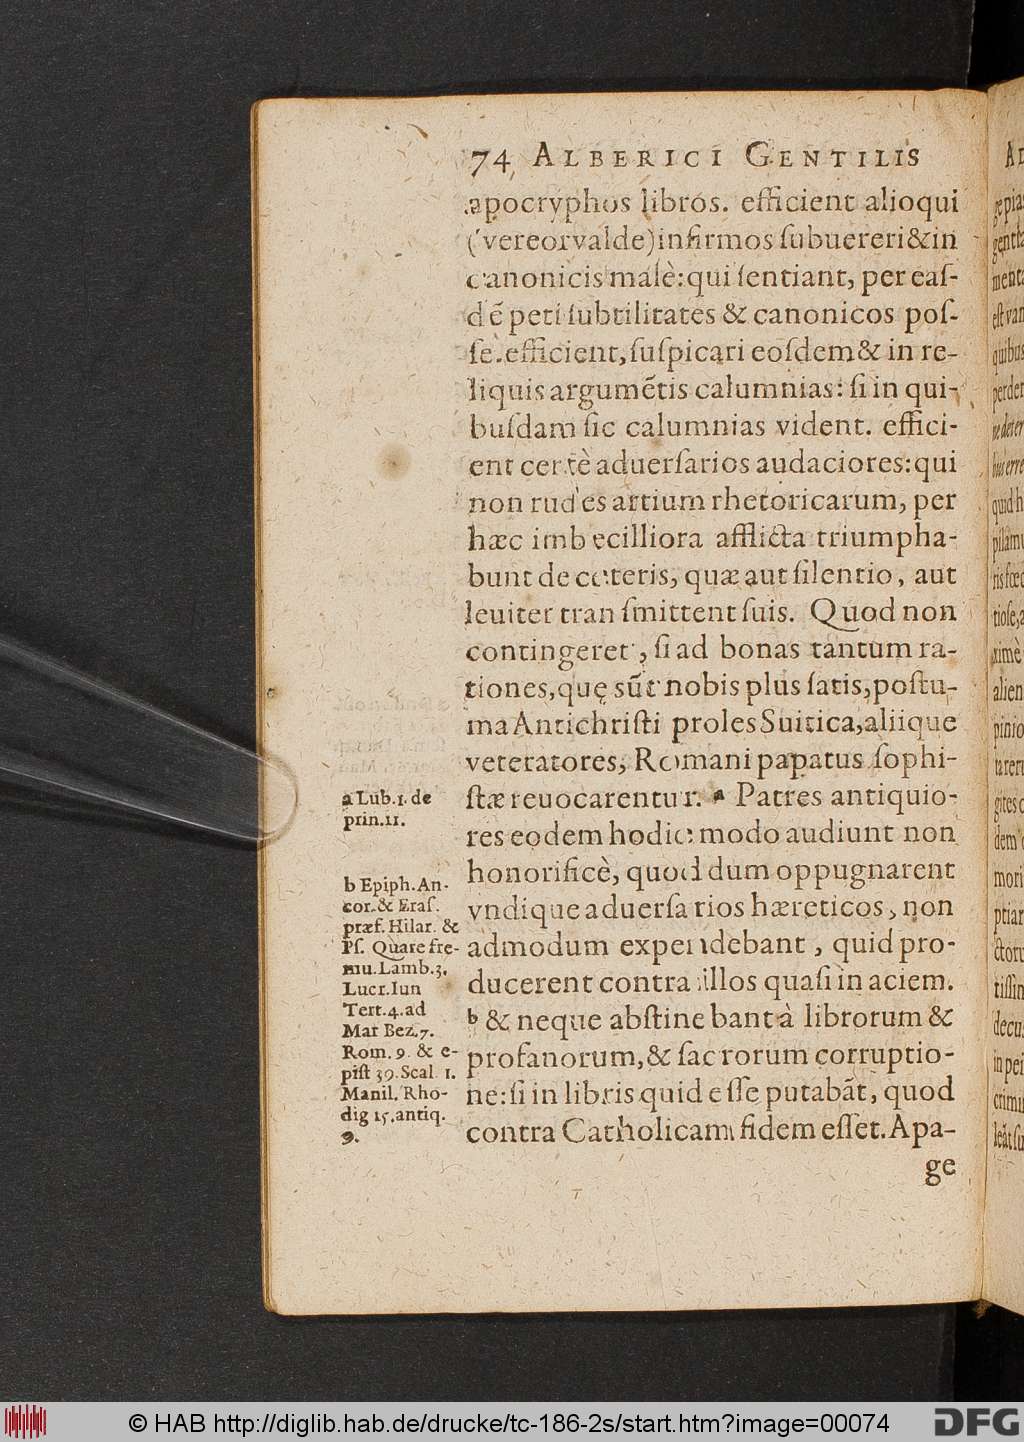 74 ALBERICI GENTILIS
apocryphos libros. efficient alioqui
(vereor valde) infirmos subuereri & in
canonicis malè: qui sentiant, per eas-
dẽ peti subtilitates & canonicos pos-
se. efficient, suspicari eosdem & in re-
liquis argumẽtis calumnias: si in qui-
busdam sic calumnias vident. effici-
ent certè aduersarios audaciores: qui
non rudes artium rhetoricarum, per
hæc imbecilliora afflicta triumpha-
bunt de ceteris, quæ aut silentio, aut
leuiter transmittent suis. Quod non
contingeret, si ad bonas tantum ra-
tiones, quę sũt nobis plus satis, postu-
ma Antichristi proles Suitica, aliique
veteratores, Romani papatus sophi-
stæ reuocarentur. a Patres antiquio-
res eodem hodie modo audiunt non
honorificè, quod dum oppugnarent
vndique aduersarios hæreticos, non
admodum expendebant, quid pro-
ducerent contra illos quasi in aciem.
b & neque abstinebant à librorum &
profanorum, & sacrorum corruptio-
ne: si in libris quid esse putabãt, quod
contra Catholicam fidem esset. Apa-
ge
a Lub. 1. de
prin. 11.
b Epiph. An-
cor. & Eras.
præf. Hilar. &
Ps. Quare fre-
mu. Lamb. 3.
Lucr. Iun
Tert. 4. ad
Mar Bez. 7.
Rom. 9. & e-
pist 39. Scal. 1.
Manil. Rho-
dig 15. antiq.
9.
© HAB http://diglib.hab.de/drucke/tc-186-2s/start.htm?image=00074
DFG